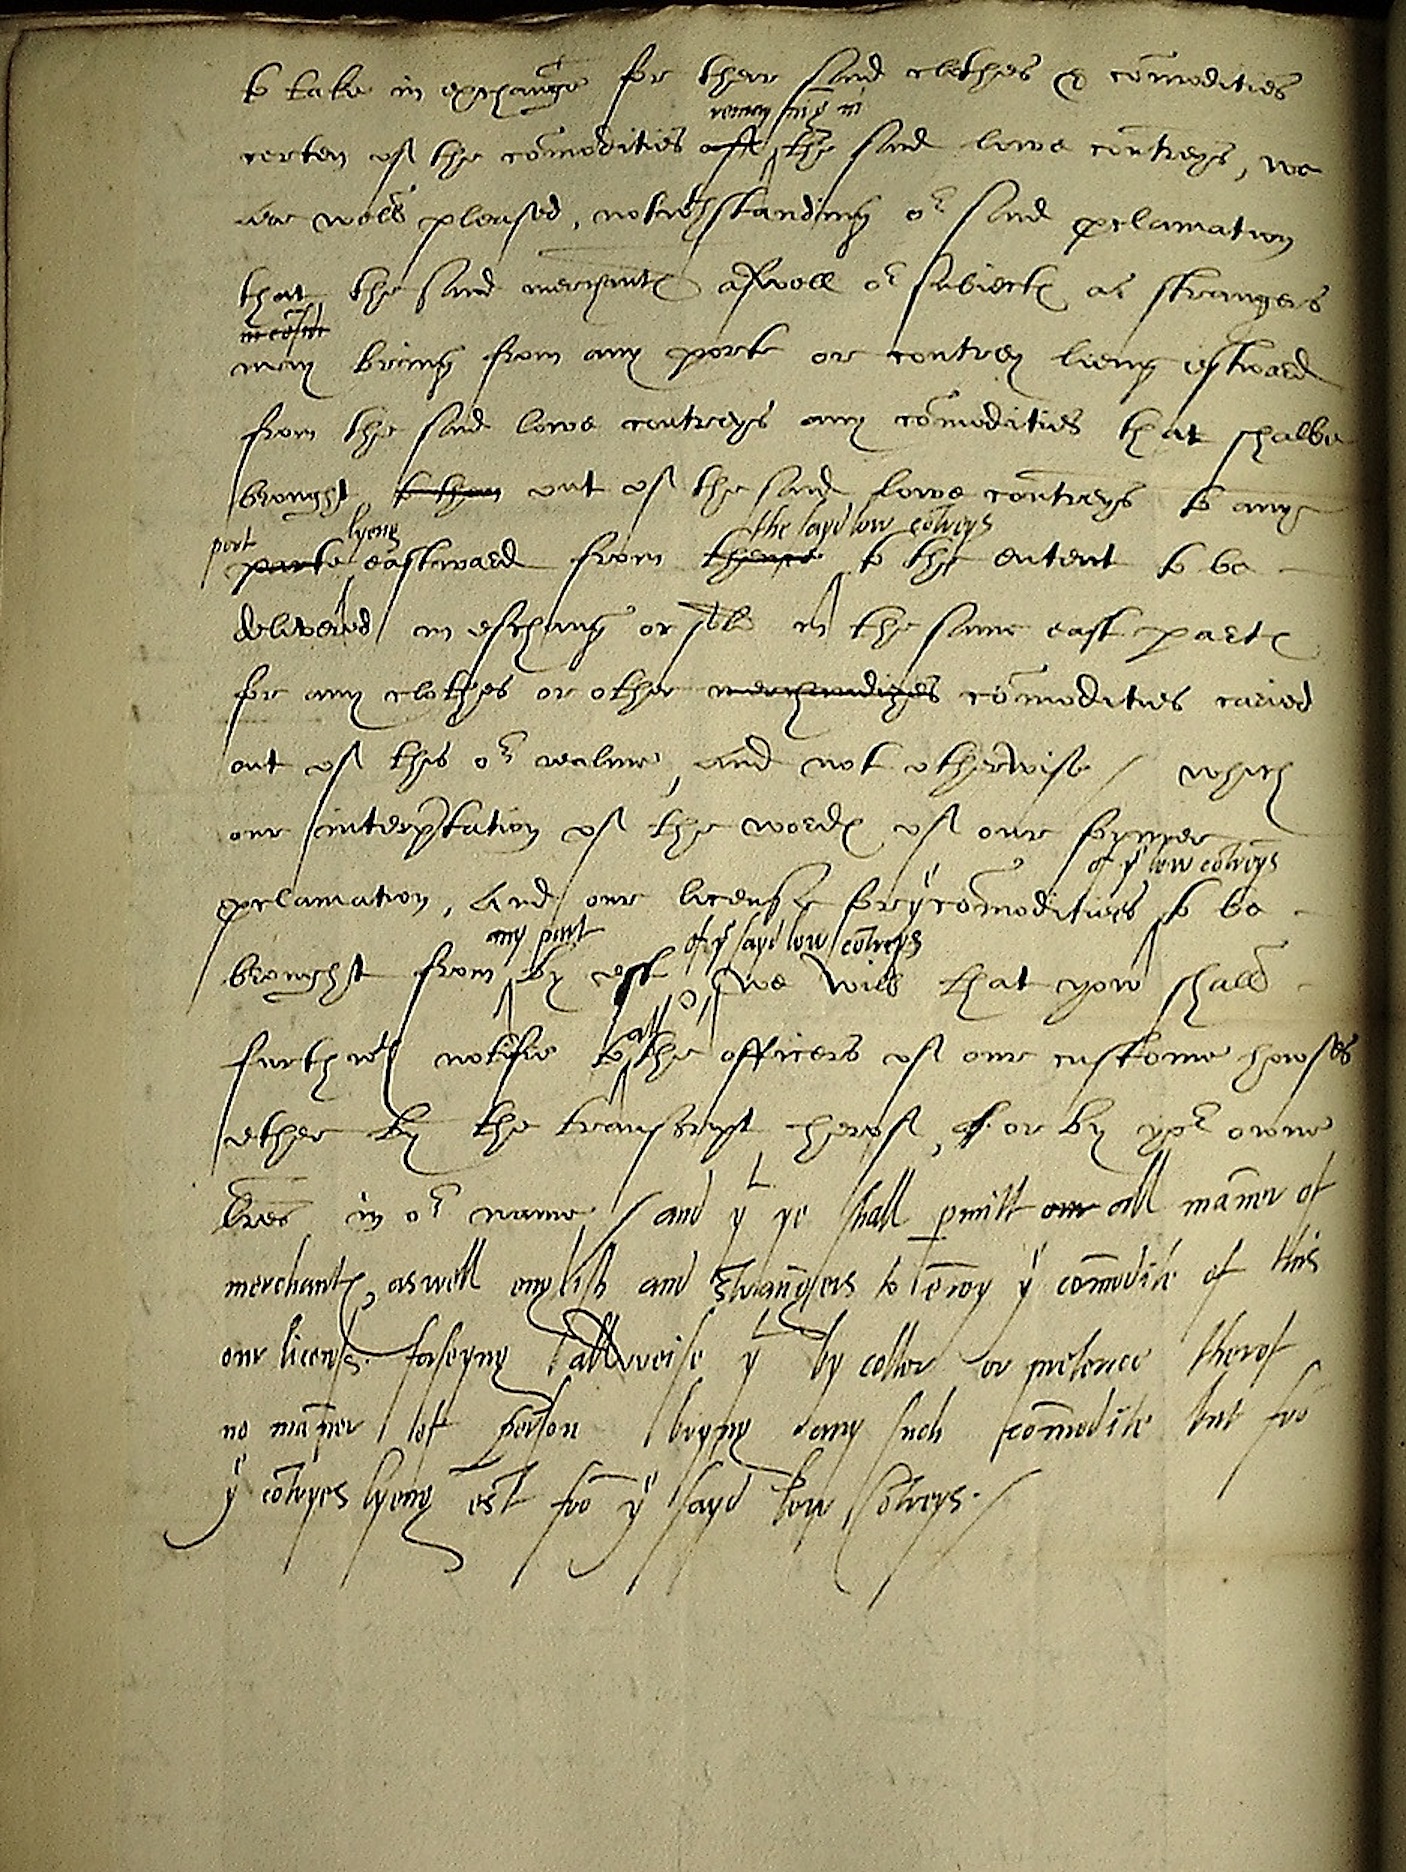 to take in exchange for theyr said clothes & comodities
remayning in
certen of the comodities off the said lowe contreys, we
are well pleased, notwthstanding or said proclamation
that the said merchants aswell or subiects as strangers
may bring from any porte or contrey lieng estward
from the said lowe contreys any comodities that shalbe
brought to them out of the said lowe contreys to any
port lyeng the sayd low cotreys
parte eastward from thence to the entent to be
delivered in eschang or sold in the same east parts
for any clothes or other merchandizes comodities caried
out of this or realme, and not otherwise / which
our interpretation of the words of our former
of ye low cotreys
proclamation, and our license for ye comodities to be
any port of ye sayd low cotreys
brought from by est we will that yow shall
all
furthwt notifie to the officers of our custome howses
ether by the transcript herof, or by yor owne
lres in or name / and yt ye shall pmitt our all maner of
merchants, aswell english and strangers to enioy ye comodite of this
our licens. forseyng allweise yt by coller or pretence therof
no maner of person bryng any such comodite but fro
ye cotryes lyeng est fro ye sayd low cotreys. /